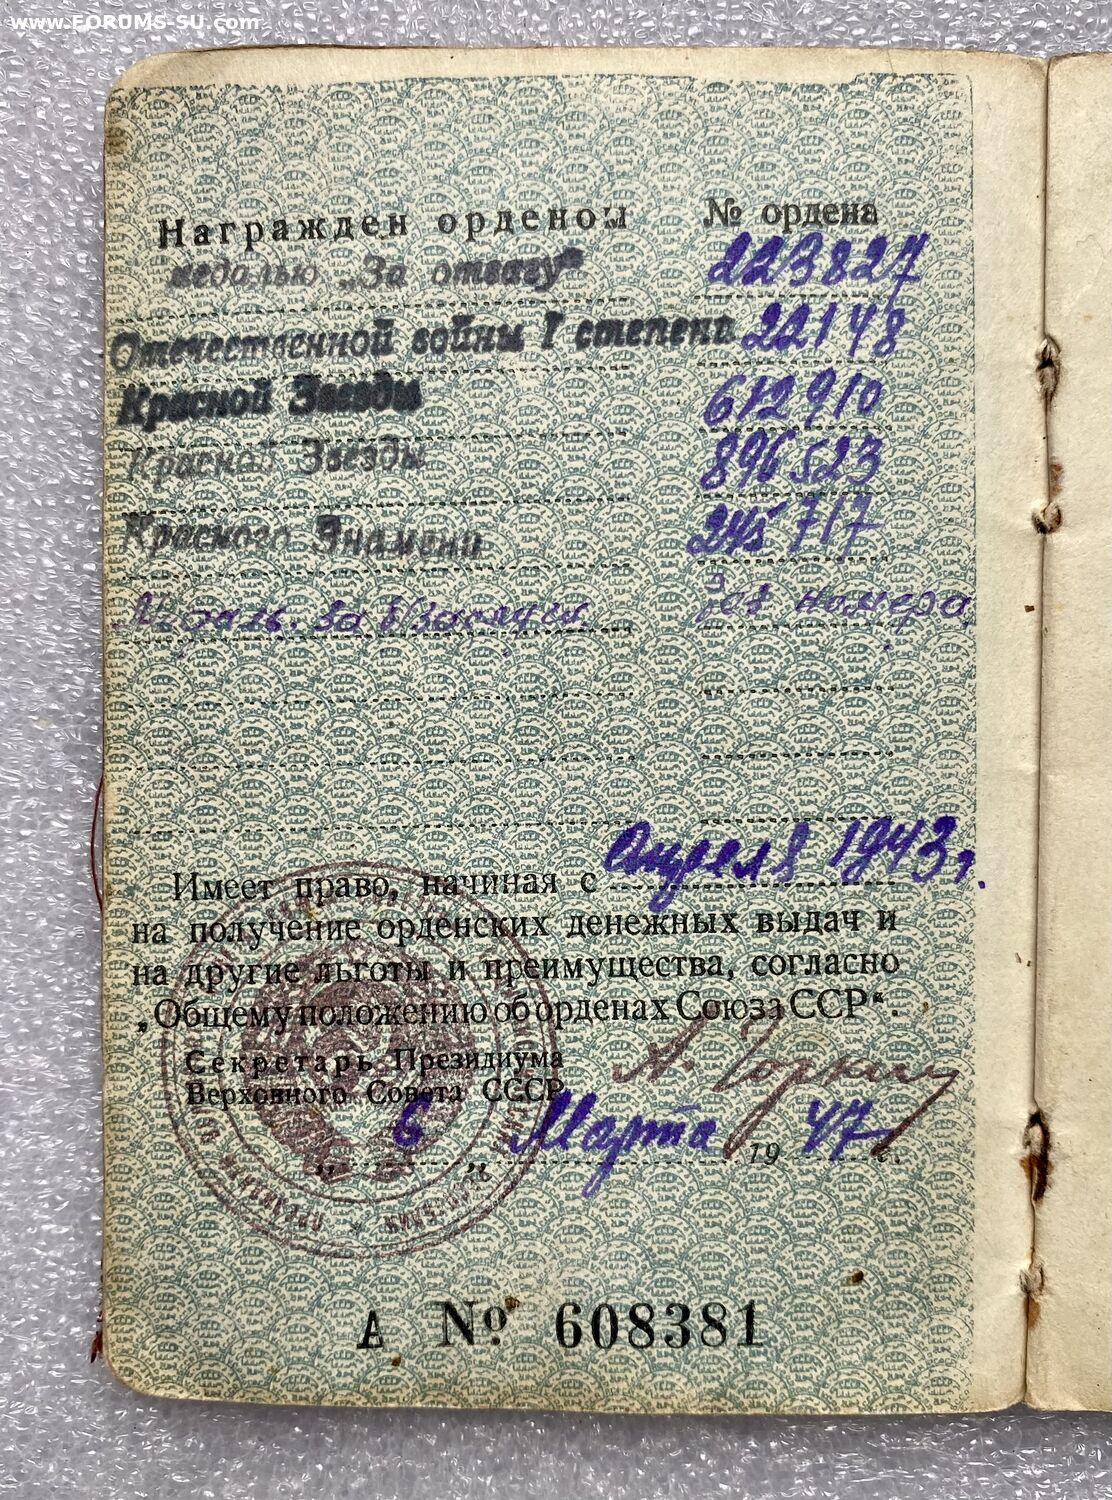 www.FORUMS-SU.com
Награжден орденом № ордена
медалью „За отвагу“ 223827
Отечественной войны I степени 22148
Красной Звезды 612910
Красной Звезды 896523
Красного Знамени 245717
Медаль. за б/заслуги Без номера
Имеет право, начиная с Апреля 1943г.
на получение орденских денежных выдач и
на другие льготы и преимущества, согласно
„Общему положению об орденах Союза ССР“.
Секретарь Президиума
Верховного Совета СССР А. Горкин
„ 6 „ Марта 19 47 г.
А № 608381